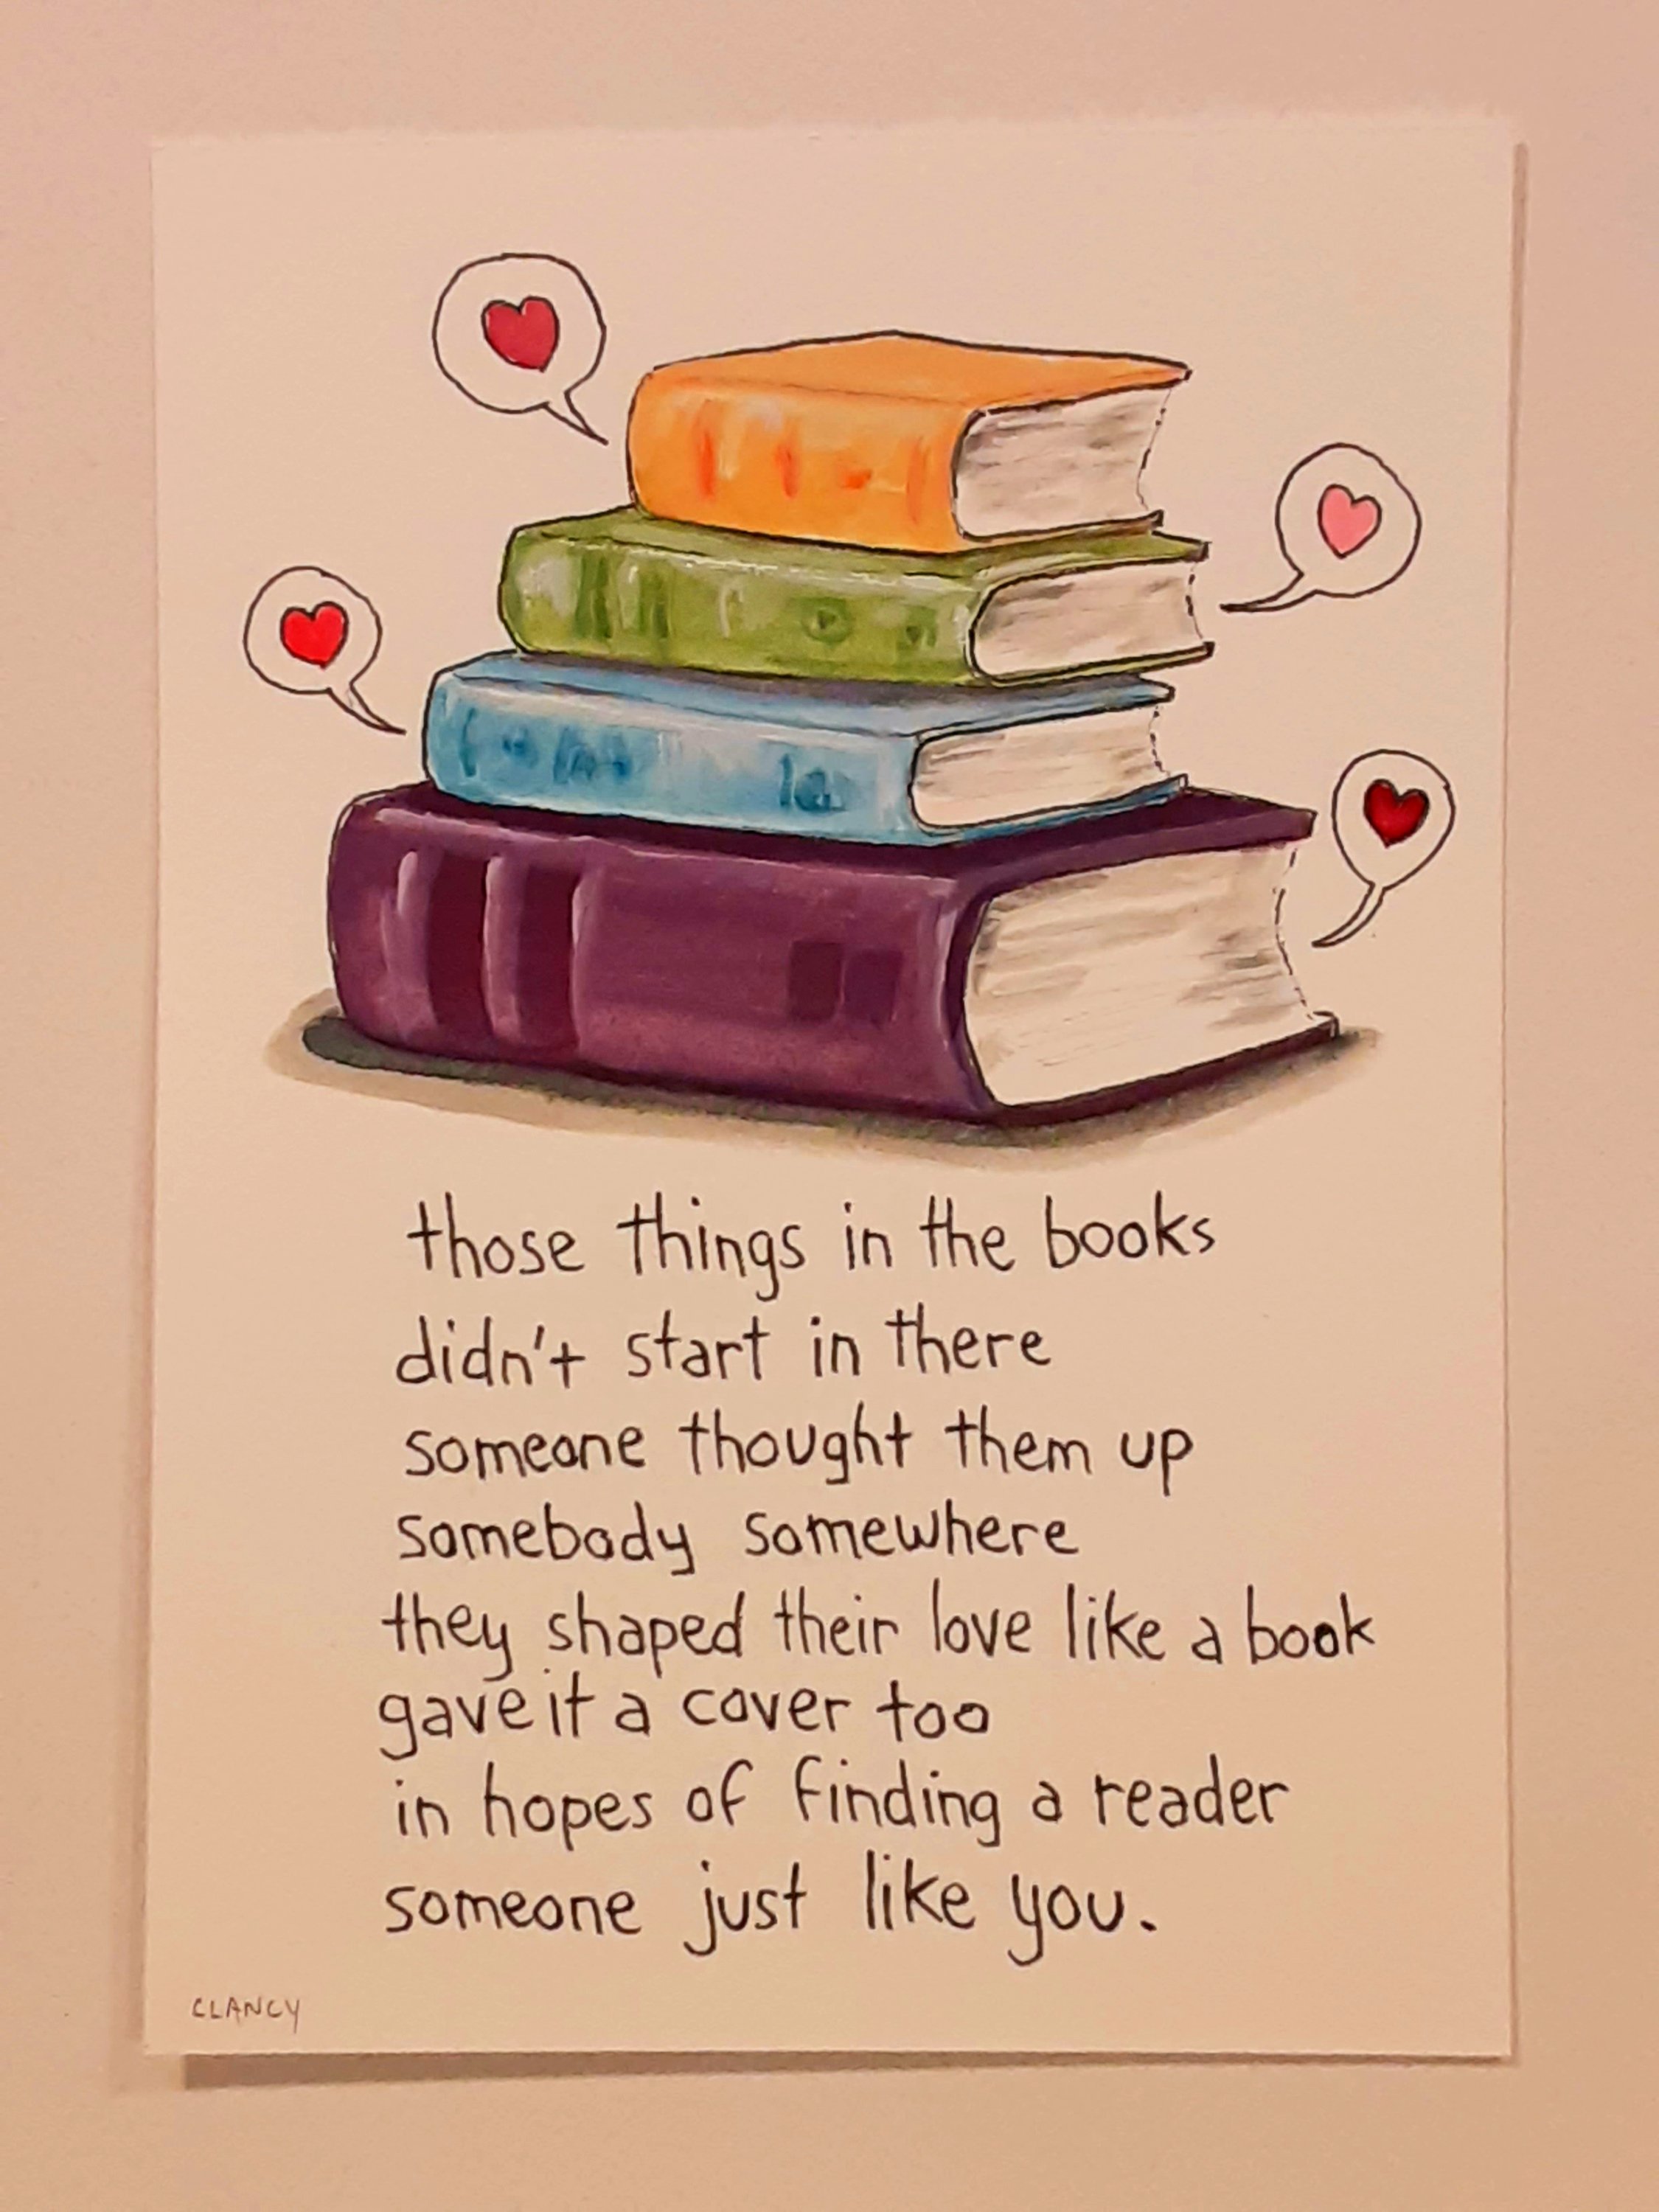 those things in the books
didn't start in there
someone thought them up
somebody somewhere
they shaped their love like a book
gave it a cover too
in hopes of finding a reader
someone just like you.
CLANCY